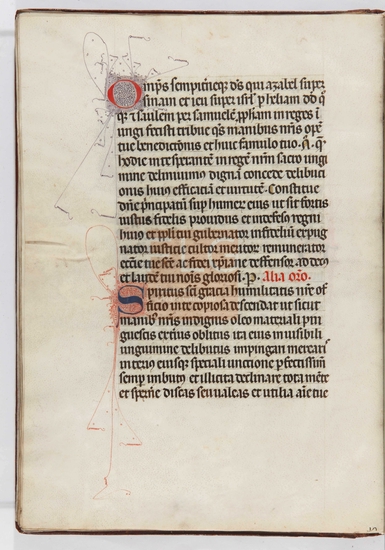 Omps sempitneqz ds qui azahel supr
siriam et ieu supr isrl p heliam
qz saulem per samuelem, ppham in reges
ungi fecisti tribue qs manibus nris opem
tue benedictionis et huic famulo tuo. A. q
hodie inte sperante in regem nrm sacro ungi
mine delinimus dignam concede delibuti
onis huius efficaciam et virtutem. Constitue
dne principatum sup humer eius ut sit fortis
iustus fidelis providus et indefesus regni
huius et ppli tui gubernator infidelium expug
nator iusticie cultor meritor remunerator
ecclie tue sce ac fidei xpiane deffensor ad decus
et laudem tui nois gloriosi. p. Alia oro.
Spiritus sci gracia humilitatis nre of
ficio in te copiosa descendat ut sicut
manibus nris indignis oleo materiali pin
guescis exterius oblitus ita eius invisibili
unguimine delibutus impingari merearis
eiusqz speciali unctione perfectissime
semp imbutus et illicita declinare tota mente
et spernere discas seu valeas et utilia aie tue